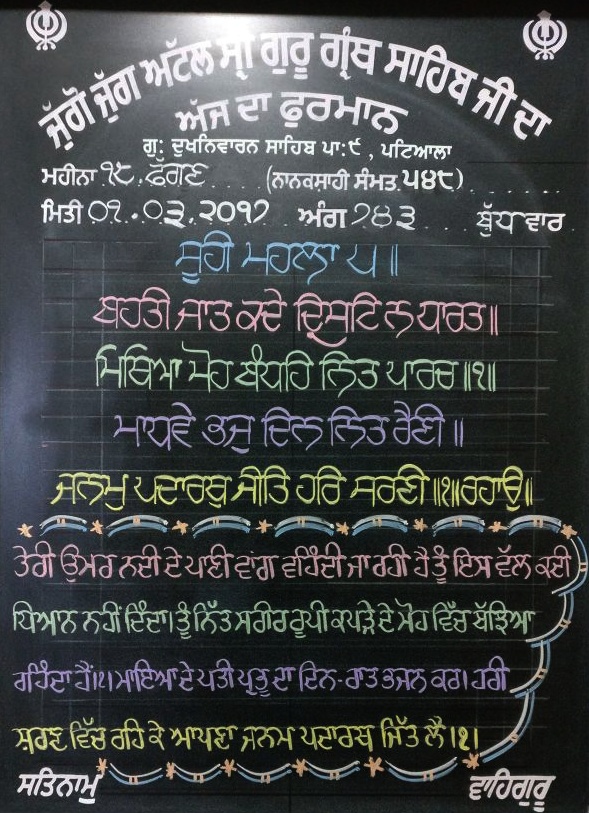 ਜੁੱਗੋ ਜੁੱਗ ਅਟੱਲ ਸ੍ਰੀ ਗੁਰੂ ਗ੍ਰੰਥ ਸਾਹਿਬ ਜੀ ਦਾ
ਅੱਜ ਦਾ ਫੁਰਮਾਨ
ਗੁ: ਦੁਖਨਿਵਾਰਨ ਸਾਹਿਬ ਪਾ:੯, ਪਟਿਆਲਾ
ਮਹੀਨਾ ੧੮ ਫੱਗਣ (ਨਾਨਕਸ਼ਾਹੀ ਸੰਮਤ ੫੪੮)
ਮਿਤੀ 01.03.2017 ਅੰਗ 743 ਬੁੱਧ ਵਾਰ
ਸੂਹੀ ਮਹਲਾ ੫॥
ਬਹਤੀ ਜਾਤ ਕਦੇ ਦ੍ਰਿਸਟਿ ਨ ਧਾਰਤ॥
ਮਿਥਿਆ ਮੋਹ ਬੰਧਹਿ ਨਿਤ ਪਾਰਚ॥੧॥
ਮਾਧਵੇ ਭਜੁ ਦਿਨ ਨਿਤ ਰੈਣੀ॥
ਜਨਮੁ ਪਦਾਰਥੁ ਜੀਤਿ ਹਰਿ ਸਰਣੀ॥੧॥ਰਹਾਉ॥
ਤੇਰੀ ਉਮਰ ਨਦੀ ਦੇ ਪਾਣੀ ਵਾਂਗ ਵਹਿੰਦੀ ਜਾ ਰਹੀ ਹੈ ਤੂੰ ਇਸ ਵੱਲ ਕਦੀ
ਧਿਆਨ ਨਹੀਂ ਦਿੰਦਾ। ਤੂੰ ਨਿੱਤ ਸਰੀਰ ਰੂਪੀ ਕਪੜੇ ਦੇ ਮੋਹ ਵਿੱਚ ਬੱਝਿਆ
ਰਹਿੰਦਾ ਹੈਂ।੧। ਮਾਇਆ ਦੇ ਪਤੀ ਪ੍ਰਭੂ ਦਾ ਦਿਨ-ਰਾਤ ਭਜਨ ਕਰ। ਹਰੀ
ਸ਼ਰਣ ਵਿੱਚ ਰਹਿ ਕੇ ਆਪਣਾ ਜਨਮ ਪਦਾਰਥ ਜਿੱਤ ਲੈ।੧।
ਸਤਿਨਾਮੁ ਵਾਹਿਗੁਰੂ